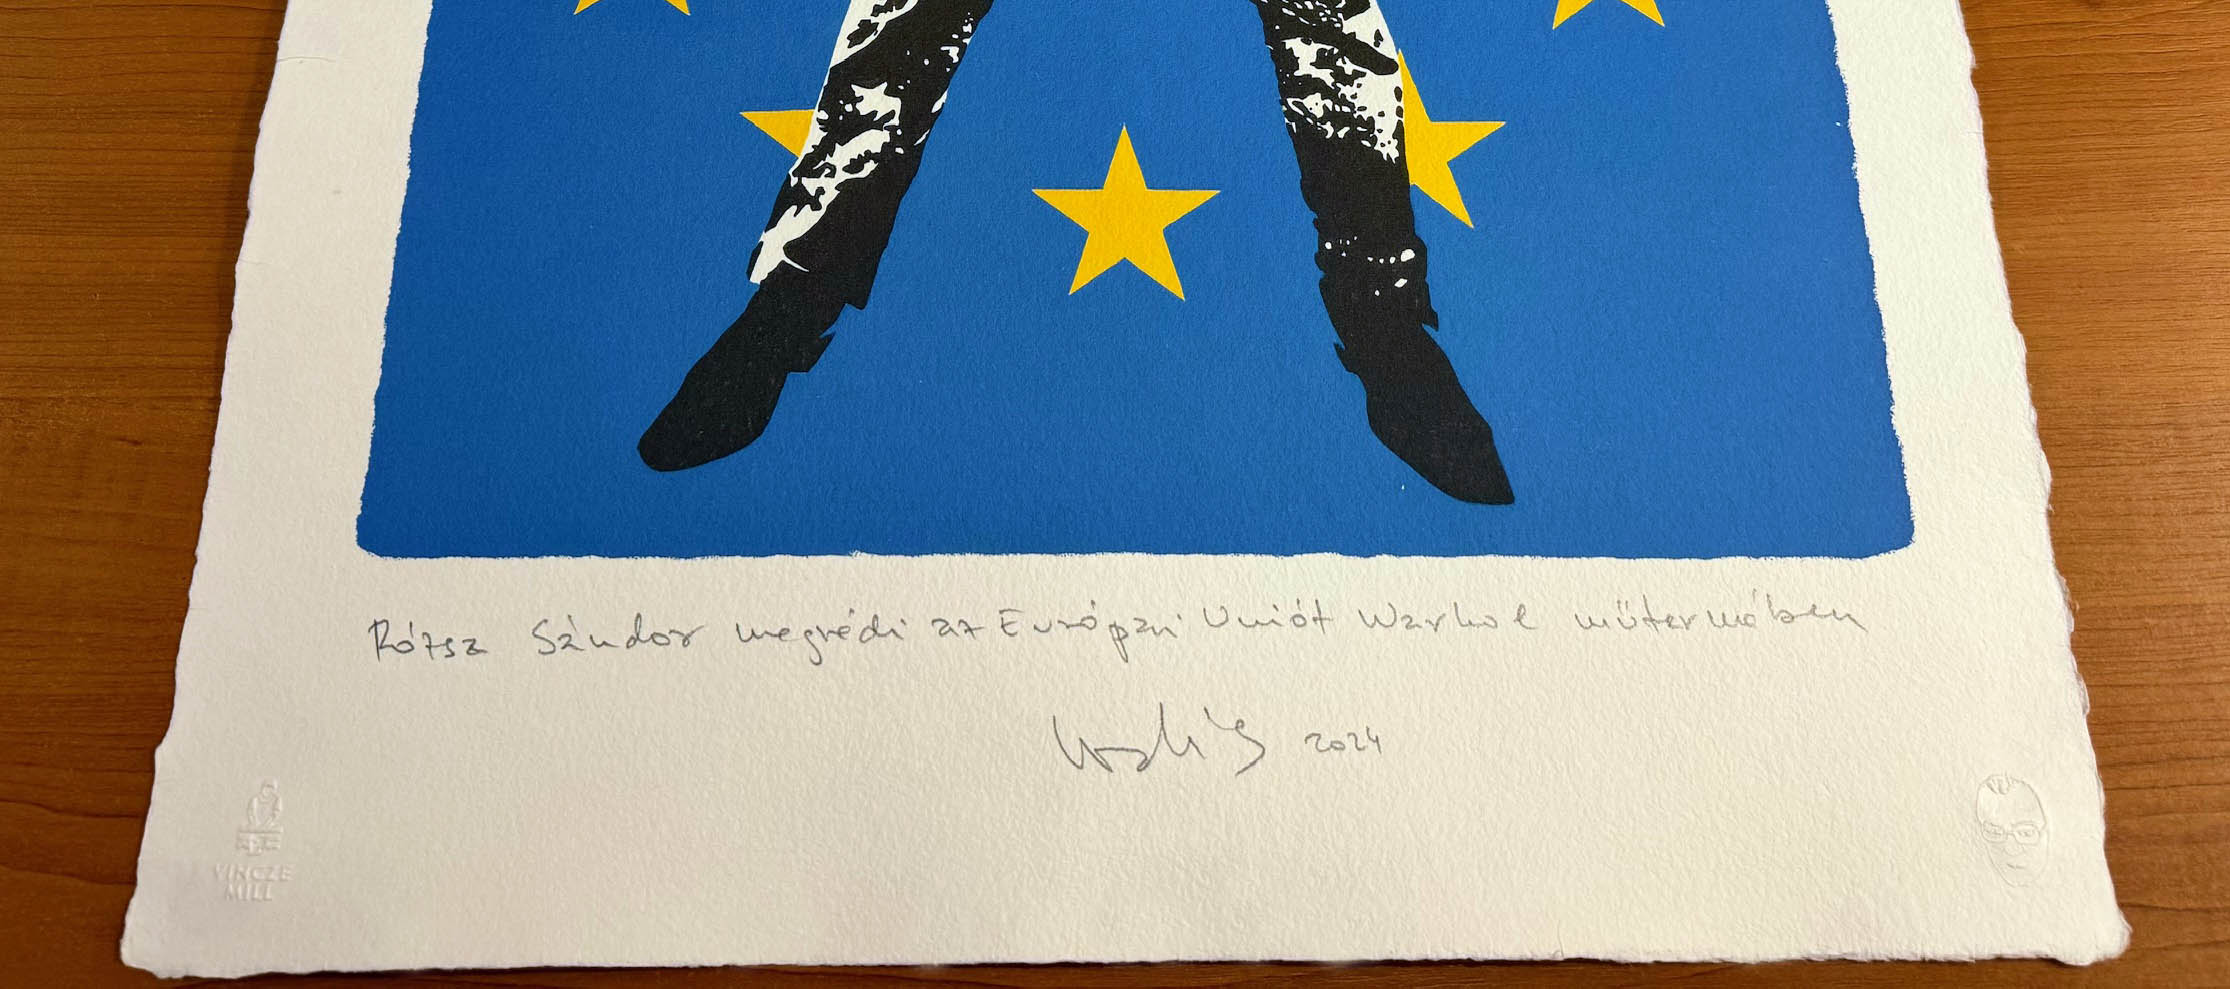 Rózsa Sándor megvédi az Európai Uniót Warhol műtermében
2024
VINCZE
MILL